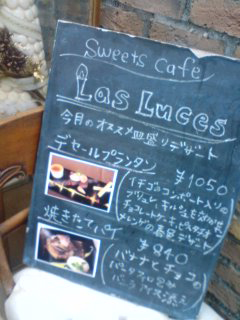 Sweets Cafe
Las Luces
今月のオススメ皿盛りデザート
デセールプランタン
¥1050
イチゴのコンポート入りの
チョコレートケーキ、ピスタチオ
メレンゲの春色デザート
焼きたてパイ
¥840
バナナとチョコの